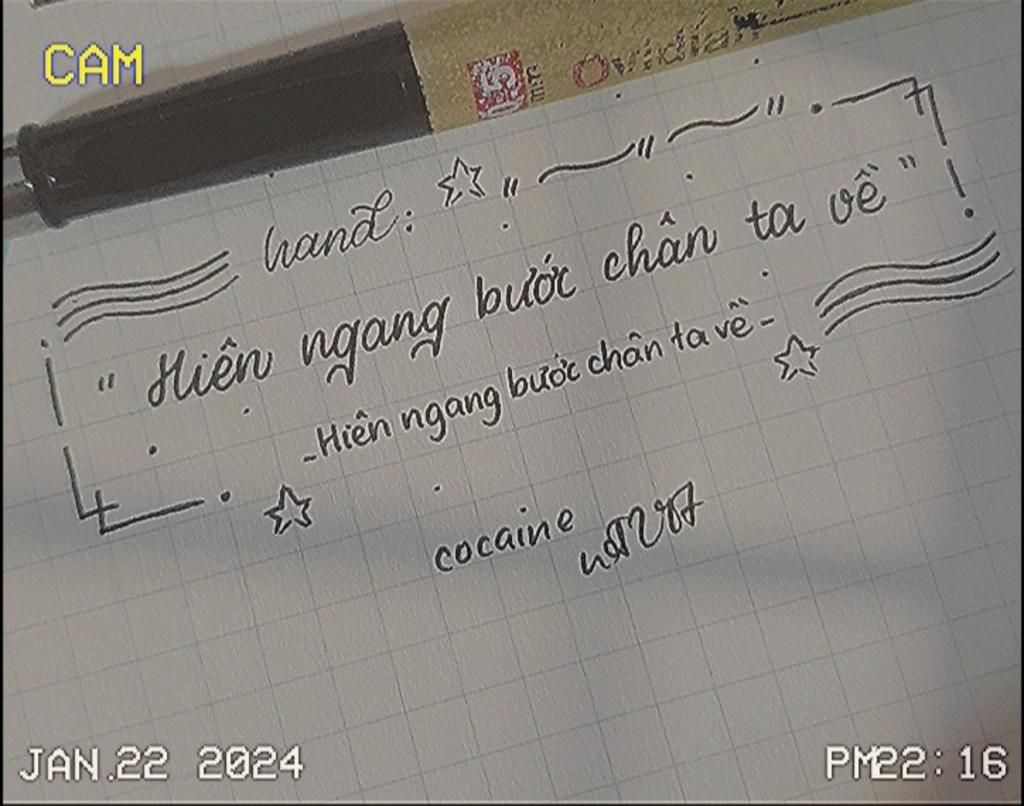 CAM
Ovidian
hand:
" Hiên ngang bước chân ta về "
- Hiên ngang bước chân ta về -
cocaine
JAN.22 2024
PM22:16